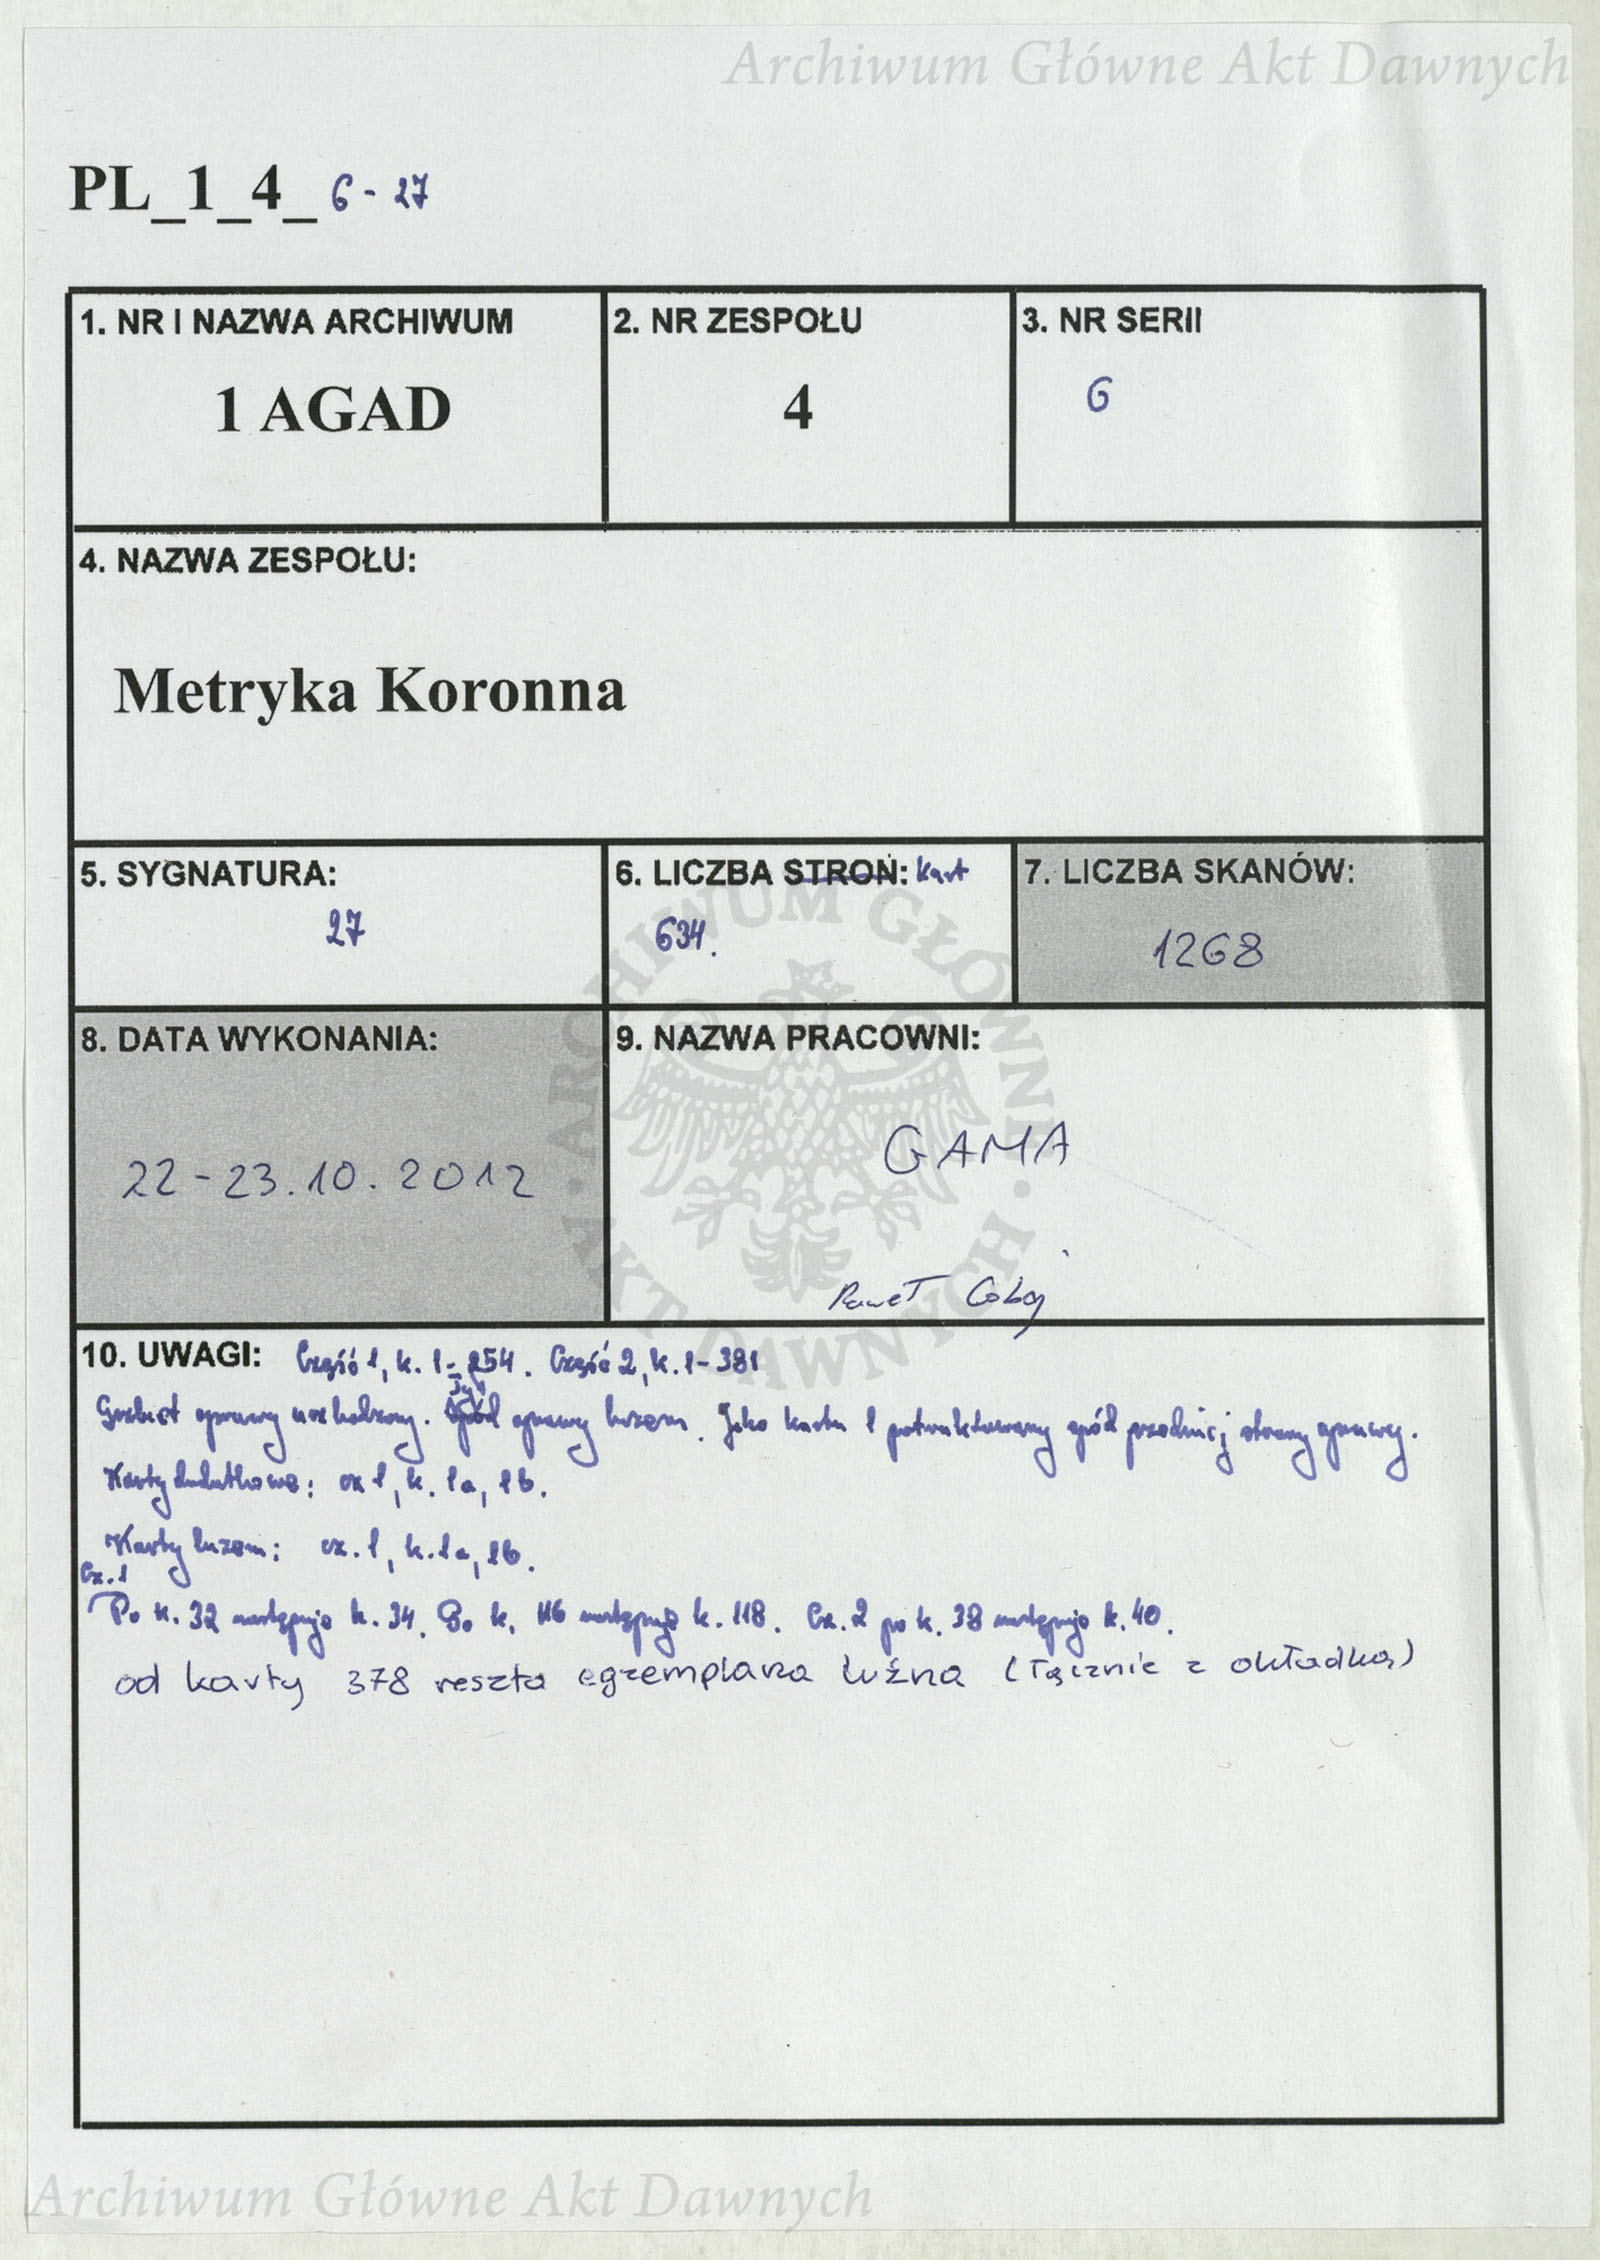 Archiwum Główne Akt Dawnych
PL_1_4_ 6 - 27
1. NR I NAZWA ARCHIWUM
1 AGAD
2. NR ZESPOŁU
4
3. NR SERII
6
4. NAZWA ZESPOŁU:
Metryka Koronna
5. SYGNATURA:
27
6. LICZBA STRON: kart
634.
7. LICZBA SKANÓW:
1268
8. DATA WYKONANIA:
22-23.10.2012
9. NAZWA PRACOWNI:
GAMA
Paweł
ARCHIWUM GŁÓWNE AKT DAWNYCH
10. UWAGI: Część 1, k. 1-254. Część 2, k. 1-381
Grzbiet oprawy uszkodzony. oprawy luzem. Jako karta 1 potraktowany spód przedniej strony oprawy.
Karty dodatkowe: cz 1, k. 1a, 1b.
Karty luzem: cz. 1, k. 1a, 1b.
Cz. 1
Po k. 32 następuje k. 34. Po k. 116 następuje k. 118. Cz. 2 po k. 38 następuje k. 40.
od karty 378 reszta egzemplarza luźna (łącznie z okładką)
Archiwum Główne Akt Dawnych